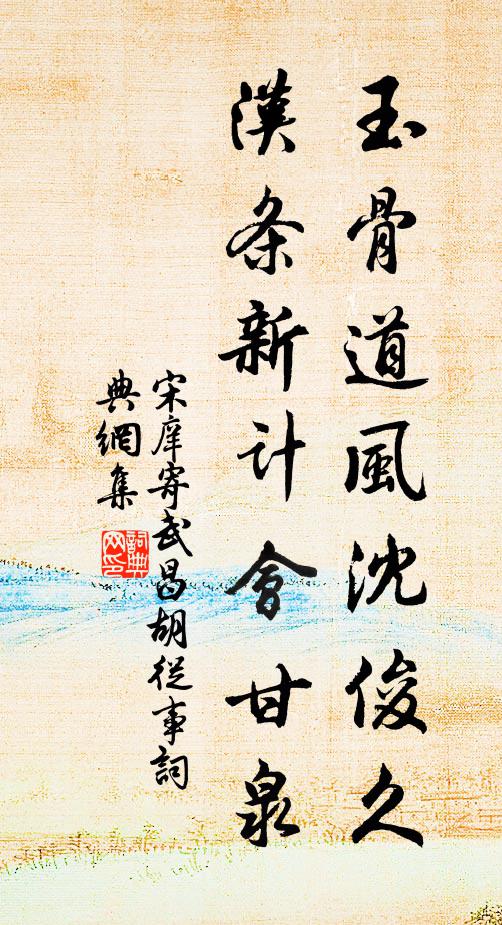 玉骨道風沈俊久
漢条新计會甘泉
宋庠寄武昌胡從事詞
典網集
詞典网印